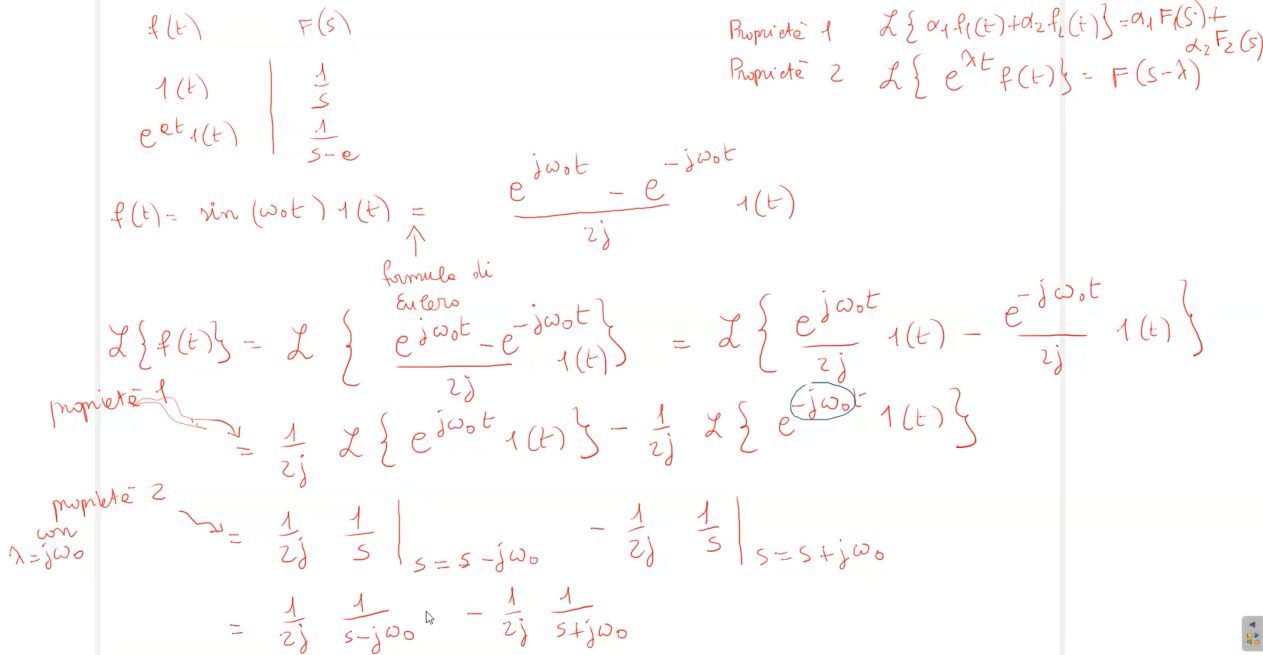 f(t) F(s)
1(t) 1/s
e^{at} 1(t) 1/(s-a)
Proprietà 1 ℒ{α₁f₁(t)+α₂f₂(t)}=α₁F₁(s)+α₂F₂(s)
Proprietà 2 ℒ{e^{λt} f(t)} = F(s-λ)
f(t) = sin(ω₀t) 1(t) = (e^{jω₀t} - e^{-jω₀t})/2j 1(t)
↑
formula di
Eulero
ℒ{f(t)} = ℒ{(e^{jω₀t} - e^{-jω₀t})/2j 1(t)} = ℒ{e^{jω₀t}/2j 1(t) - e^{-jω₀t}/2j 1(t)}
proprietà 1
= 1/2j ℒ{e^{jω₀t} 1(t)} - 1/2j ℒ{e^{-jω₀t} 1(t)}
proprietà 2
con
λ=jω₀
= 1/2j 1/s |_{s=s-jω₀} - 1/2j 1/s |_{s=s+jω₀}
= 1/2j 1/(s-jω₀) - 1/2j 1/(s+jω₀)